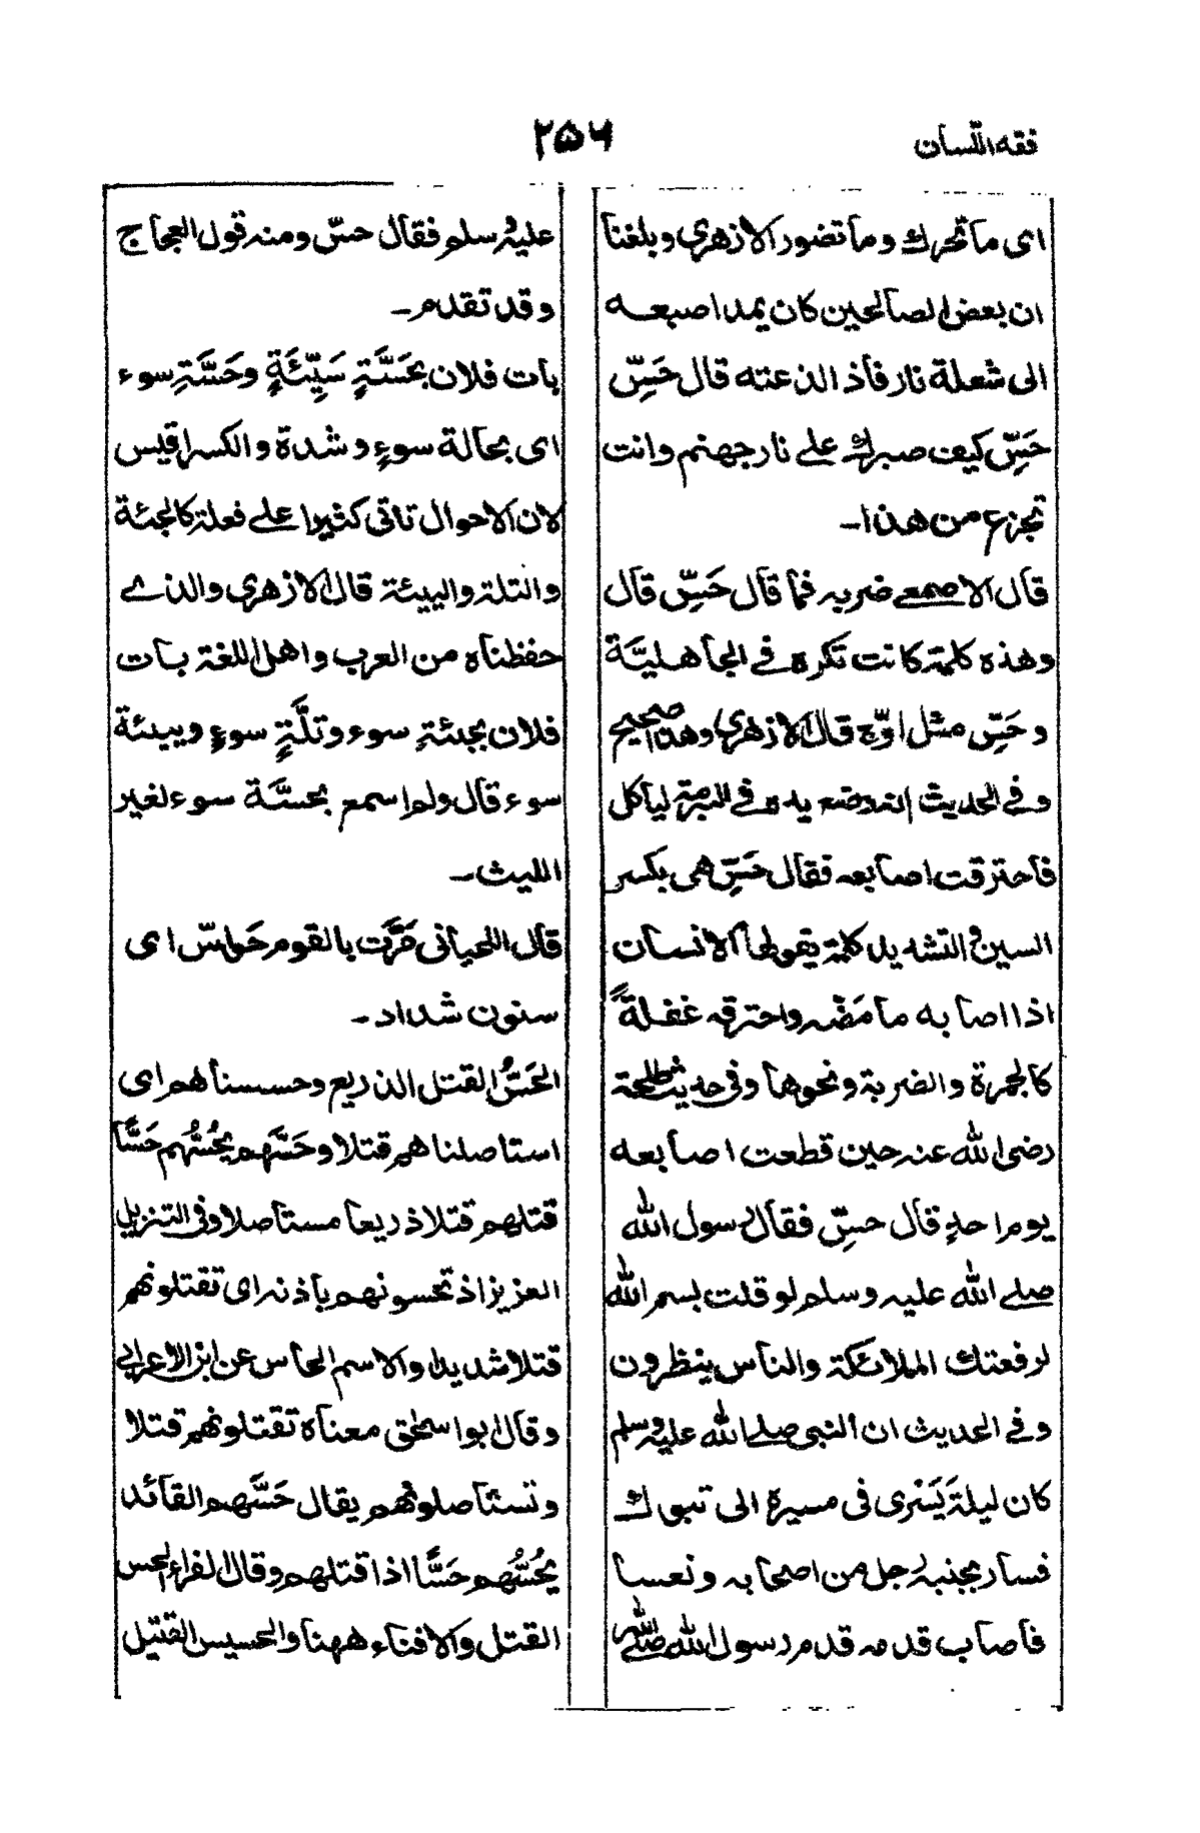 فقه اللّسان
۲۵۶
ای ما تحرك وما تضور الازهری وبلغنا
ان بعض الصالحین کان یمد اصبعه
الی شعلة نار فاذ الذعته قال حَسِّ
حَسِّ کیف صبرك علے نار جهنم وانت
تجزع من هذا۔
قال الاصمعے ضربه فما قال حَسِّ قال
وهذه کلمة کانت تکره فے الجاهلیَّة
وحَسِّ مثل اوّح قال الازهری وهذا صحیح
وفے الحدیث انه وضع یده فے البرمة لیاکل
فاحترقت اصابعه فقال حَسِّ هی بکسر
السین والتشدید کلمة یقولها الانسان
اذا اصابه ما مَضّه واحرقه غفلةً
کالجمرة والضربة ونحوها وفی حدیث طلحة
رضی الله عنه حین قطعت اصابعه
یوم احدٍ قال حسِّ فقال رسول الله
صلے الله علیه وسلم لو قلت بسم الله
لرفعتك الملائکة والناس ینظرون
وفے الحدیث ان النبی صلے الله علیه وسلم
کان لیلة یَسْری فی مسیرة الی تبوك
فسار بجنبه رجل من اصحابه ونعسا
فاصاب قدمه قدم رسول الله صلی الله
علیه وسلم فقال حسّ ومنه قول العجاج
وقد تقدم۔
بات فلان بحَسَّةٍ سَیِّئَةٍ وحَسَّةِ سوء
ای بحالة سوءٍ وشدة والکسر اقیس
لان الاحوال تاتی کثیرا علے فعلة کالجئة
والتلة والبیئة قال الازهری والذے
حفظناه من العرب واهل اللغة بات
فلان بجئةِ سوء وتلَّةٍ سوءٍ وبیئة
سوء قال ولم اسمع بحسَّة سوء لغیر
اللیث۔
قال اللحیانی مَرَّت بالقوم حَواسّ ای
سنون شداد۔
الحَسُّ القتل الذریع وحسسناهم ای
استاصلناهم قتلا وحَسَّهم یحُسُّهُم حَسًّا
قتلهم قتلا ذریعا مستاصلا وفی التنزیل
العزیز اذ تحسونهم باذنه ای تقتلونهم
قتلا شدیدا والاسم الحاس عن ابن الاعرابی
وقال ابو اسحٰق معناه تقتلونهم قتلا
وتستاصلونهم یقال حَسَّهم القائد
یحُسُّهم حَسًّا اذا قتلهم وقال الفراء الحس
القتل والافناء ههنا والحسیس القتیل